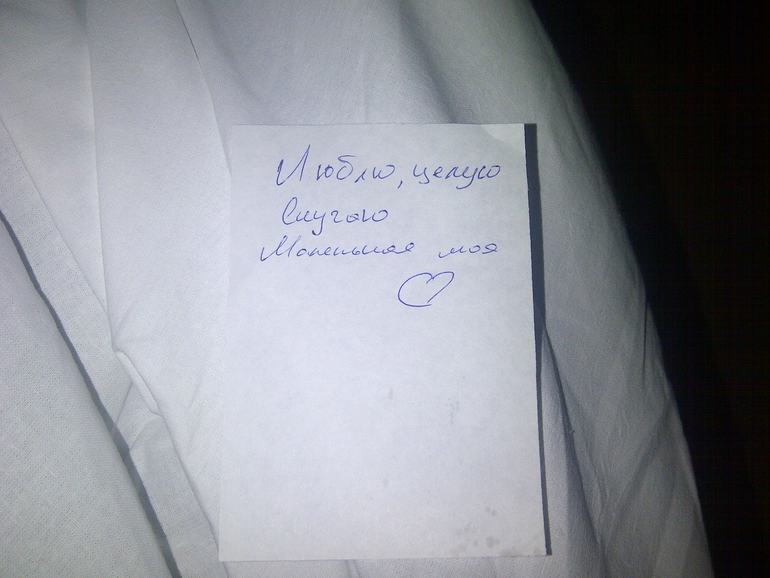 Люблю, целую
Скучаю
Маленькая моя